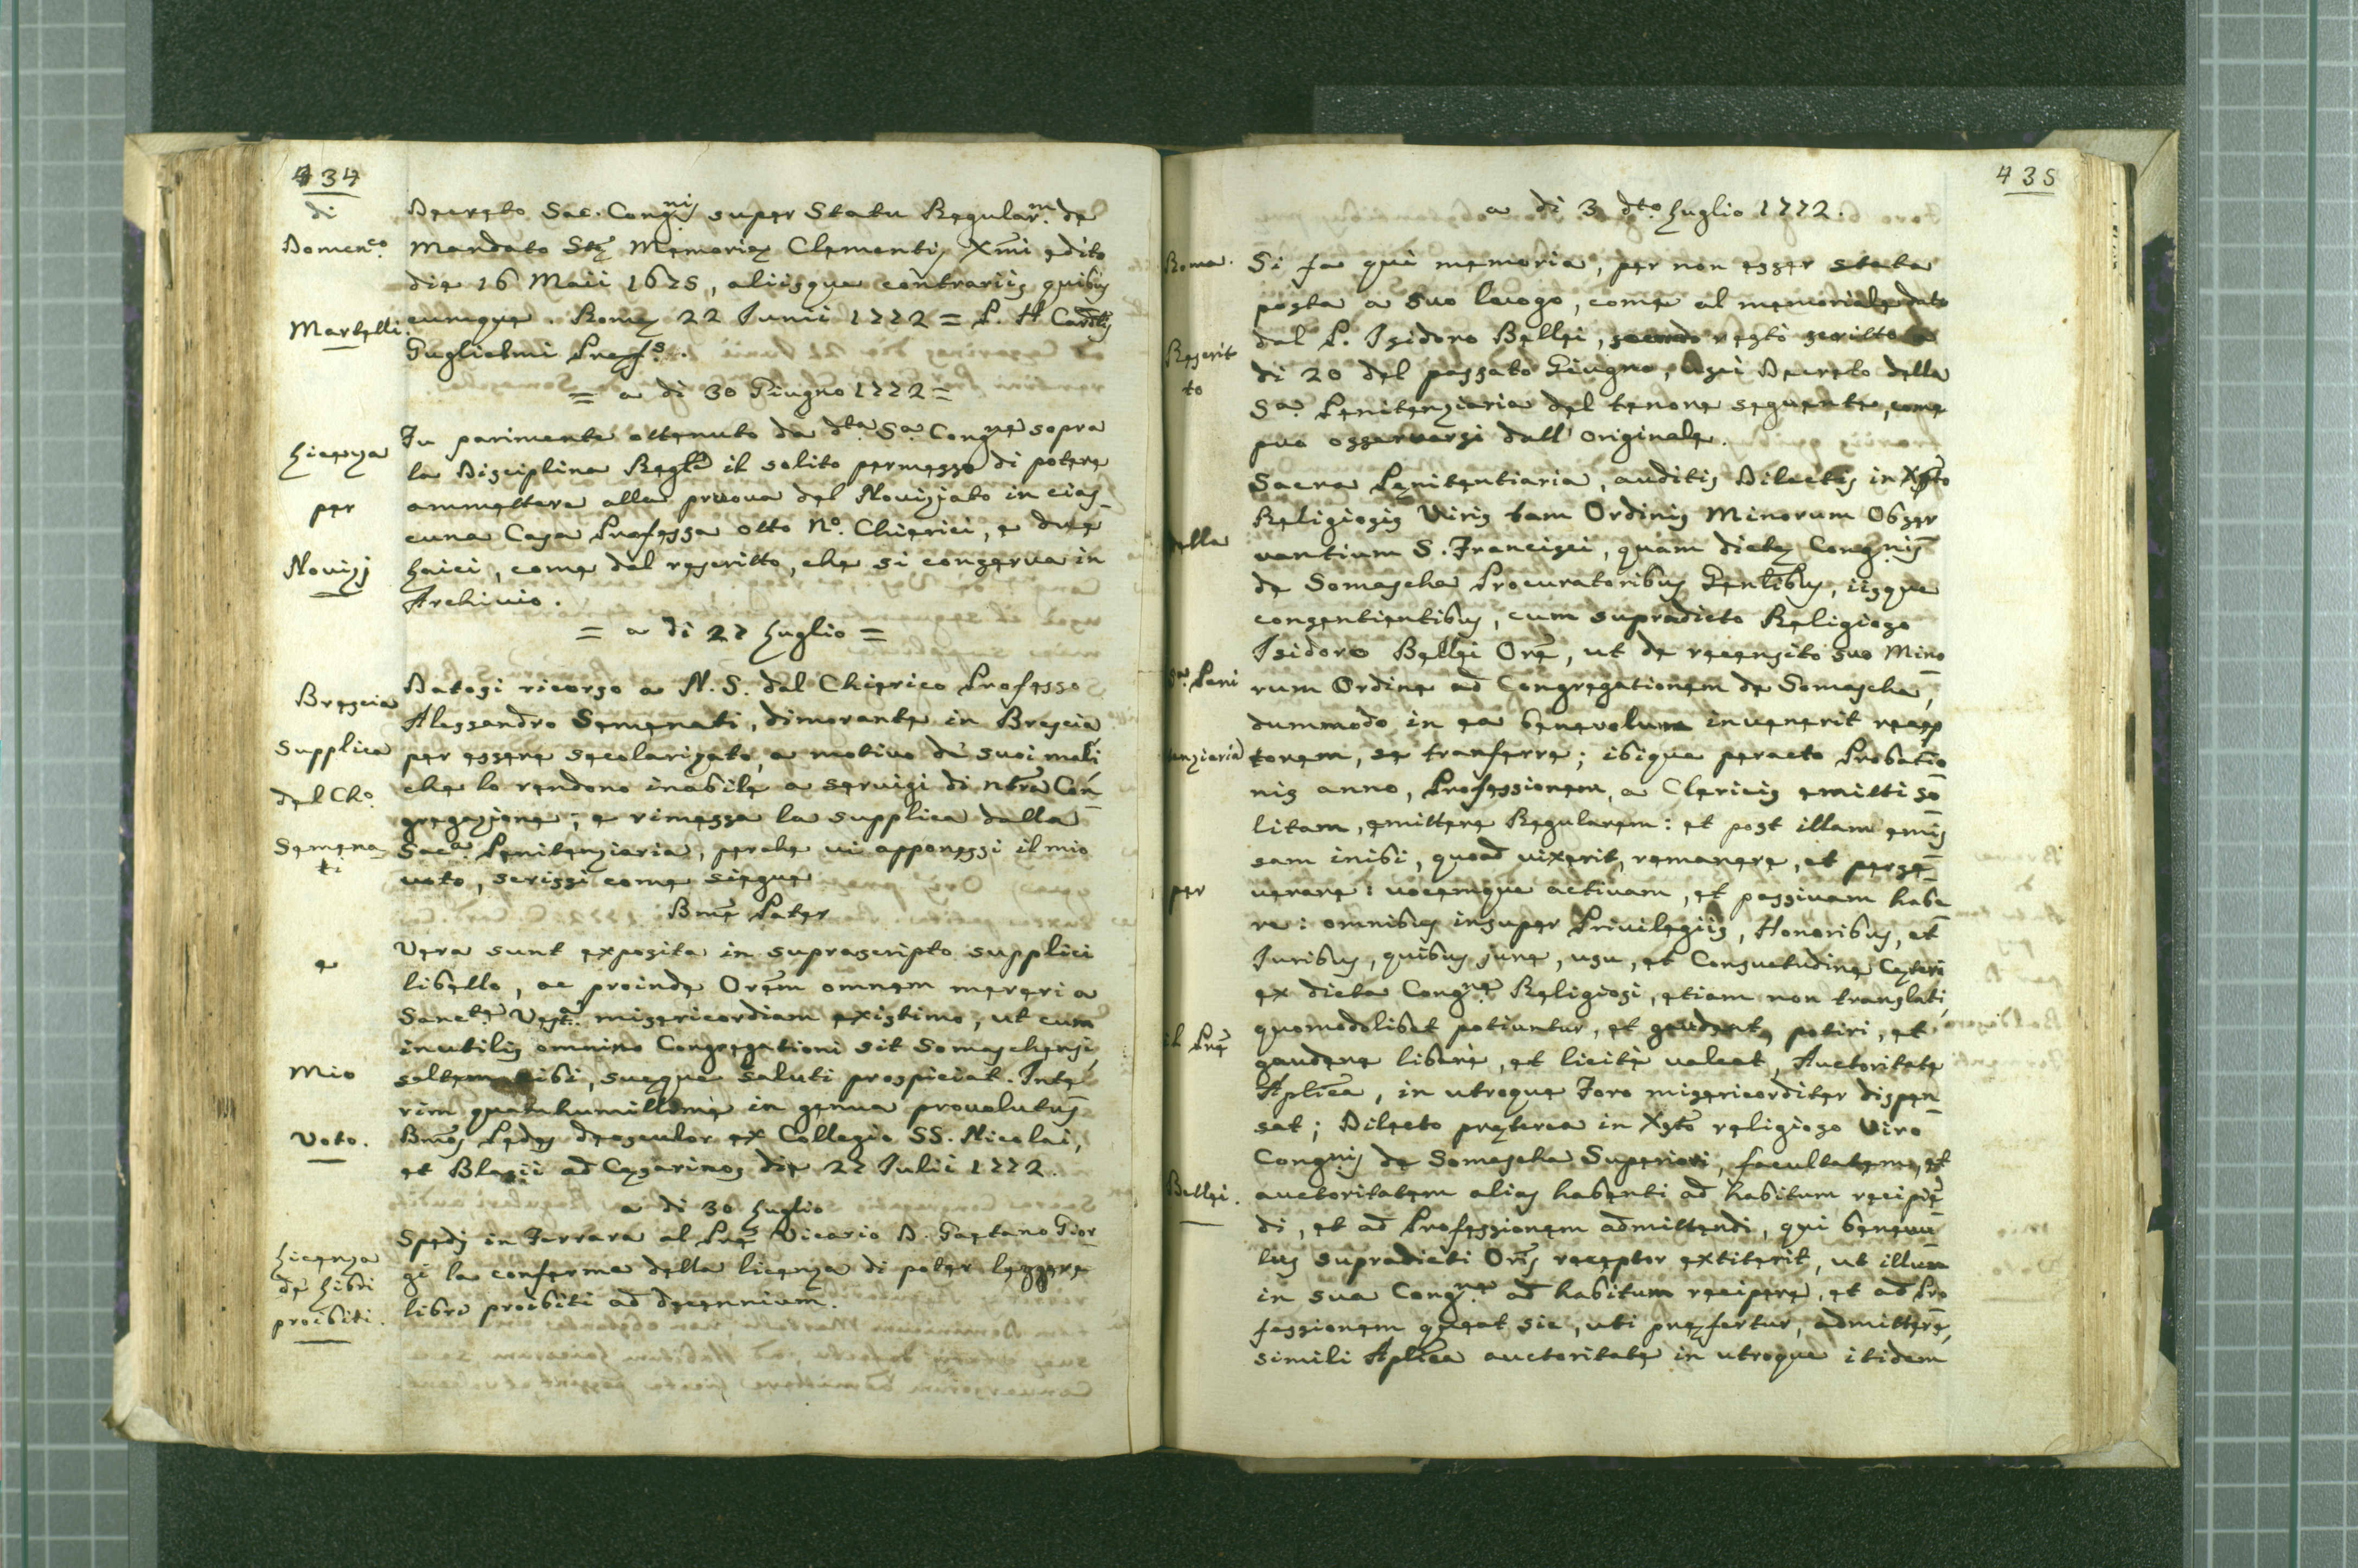 434
di
Domen.co
Martelli.
Decreto Sac. Congnis super Statu Regular.m de
mandato Stæ Memoriæ Clementis Xmi edito
die 16 Maii 1675, aliisque contrariis quibus
cumque. Romæ 22 Junii 1772 = P. H Cardlis
Guglielmi Præf.s.
= a di 30 Giugno 1772 =
Licenza
per
Novizj
Fu parimente ottenuto da dta Sa Congne sopra
la Disciplina Regle il solito permesso di potere
ammettere alla pruova del Novizjato in cias
cuna Casa Professa otto No. Chierici, e due
Laici, come dal rescritto, che si conserva in
Archivio.
= a di 27 Luglio =
Brescia
Supplica
del Cho.
Semena
ti
Datosi ricorso a N. S. dal Chierico Professo
Alessandro Semenati, dimorante in Brescia
per essere secolarizato, a motivo de' suoi mali
che lo rendono inabile a servigi di ntra Con
gregazione; e rimessa la supplica dalla
Saca. Penitenziaria, perche vi apponessi il mio
voto, scrissi come siegue
Bme Pater
e
Mio
Voto.
Vera sunt exposita in suprascripto supplici
libello, ac proinde Orem omnem mereri a
Sancte. Vest.a misericordiam existimo, ut cum
inutilis omnino Congregationi sit Somaschensi,
saltem sibi, suæque saluti prospiciat. Inte
rim quam humillime in genua provolutus
Bmos Pedes deosculor ex Collegio SS. Nicolai,
et Blasii ad Cæsarinos die 27 Julii 1772.
a di 30 Luglio
Licenza
de' Libri
proibiti.
Spedj in Ferrara al Pre Vicario D. Gaetano Gior
gi la conferma della licenza di poter leggere
libri proibiti ad decennium.
435
a di 3 dto. Luglio 1772.
Roma.
Rescrit
to
della
Sa. Peni
tenziaria
per
il Pre
Bellei.
Si fa quì memoria, per non esser stata
posta a suo luogo, come al memoriale dato
dal P. Isidoro Bellei, restò scritto
di 20 del passato Giugno, uscì Decreto della
Sa. Penitenziaria del tenore seguente, come
puo osservarsi dall' originale.
Sacra Pœnitentiaria, auditis Dilectis in Xpto
Religiosis Viris tam Ordinis Minorum Obser
vantium S. Francisci, quam dictæ Congnis
de Somascha Procuratoribus Gentlibus, iisque
consentientibus, cum supradicto Religioso
Isidoro Bellei Ore, ut de recensito suo Mino
rum Ordine ad Congregationem de Somascha,
dummodo in ea benevolum invenerit recep
torem, se transferre; ibique peracto Probatio
nis anno, Professionem, a Clericis emitti so
litam, emittere Regularem: et post illam emis
sam inibi, quoad vixerit, remanere, et perse
verare: vocemque activam, et passivam habe
re: omnibus insuper Privilegiis, Honoribus, et
Juribus, quibus jure, usu, et Consuetudine Cæteri
ex dicta Congne Religiosi, etiam non translati,
quomodolibet potiuntur, et gaudent, potiri, et
gaudere liberè, et licitè valeat, Auctoritate
Aplica, in utroque Foro misericorditer dispen
sat; Dilecto præterea in Xpto religioso Viro
Congnis de Somascha Superiori, facultatem, et
auctoritatem alias habenti ad habitum recipie
di, et ad Professionem admittendi, qui benevo
lus supradicti Oris receptor extiterit, ut illum
in sua Congne ad habitum recipere, et ad Pro
fessionem queat sic, uti præfertur, admittere,
simili Aplica auctoritate in utroque itidem